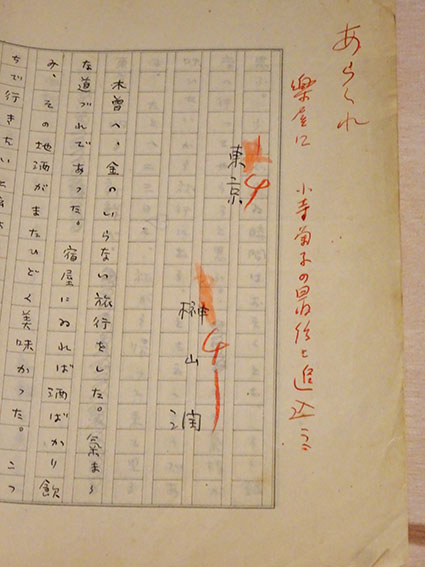 あらくれ
楽屋に 小寺菊子の最後
4
東京
4
榊山潤
木曽へ、金のいらない旅行をした。氣まゝ
な道づれであった。宿屋にゐれば酒ばかり飲
み、その地酒がまたひどく美味かった。こっ
ちで行きたい